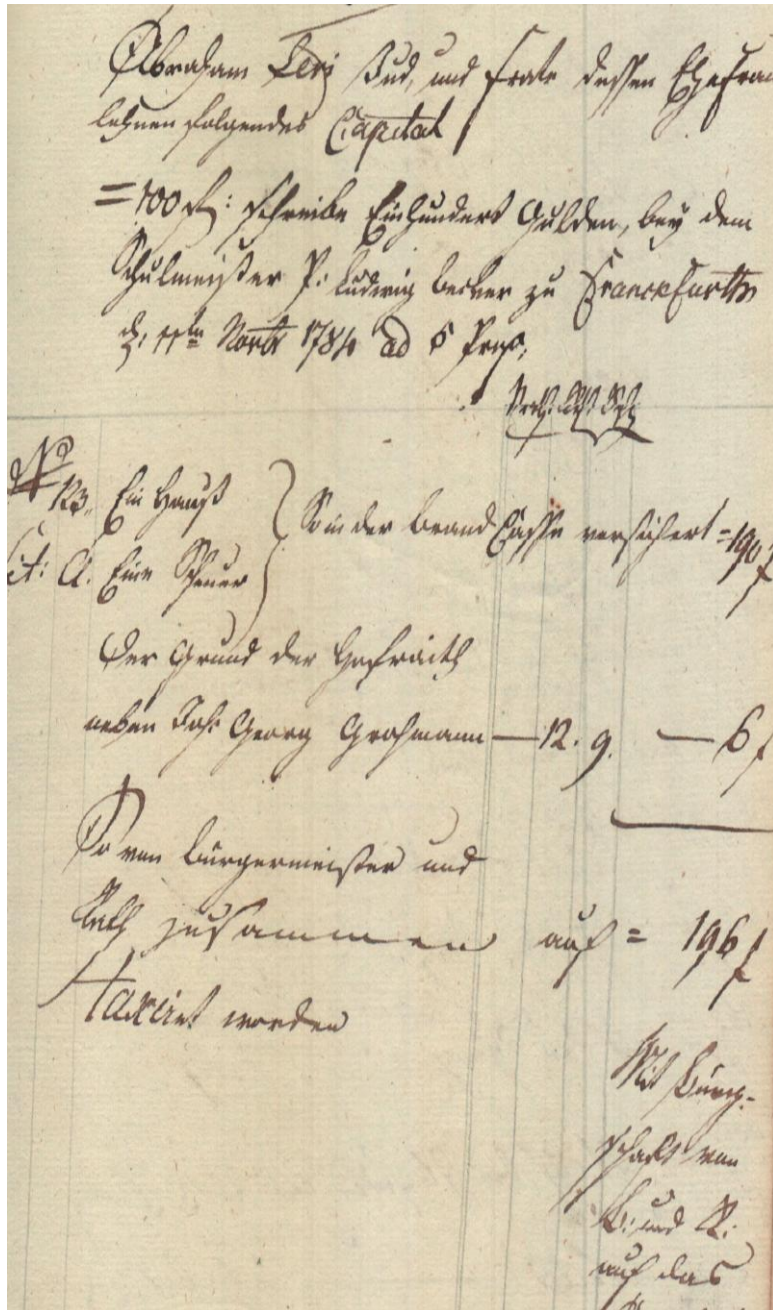 Abraham Levj Jud, und Frate dessen Ehefrau
lehnen folgendes Capital
= 100 f: schreibe Einhundert Gulden, bey dem
Schulmeister P: Ludwig Becker zu Franckfurth
d: 11ten Novbr 1784 ad 5 Prco,
Mrg. Rth
No
123. Ein Hauß
So in der brand Cassa versichert = 190 f
Lit: A. Eine Scheuer
Der Grund der Hofraith
neben Joh: Georg Grohmann — 12. 9. — 6 f
So von Burgermeister und
Rath zusammen auf = 196 f
taxirt worden
Mit Bürg-
schaft von
B: und R:
auf das